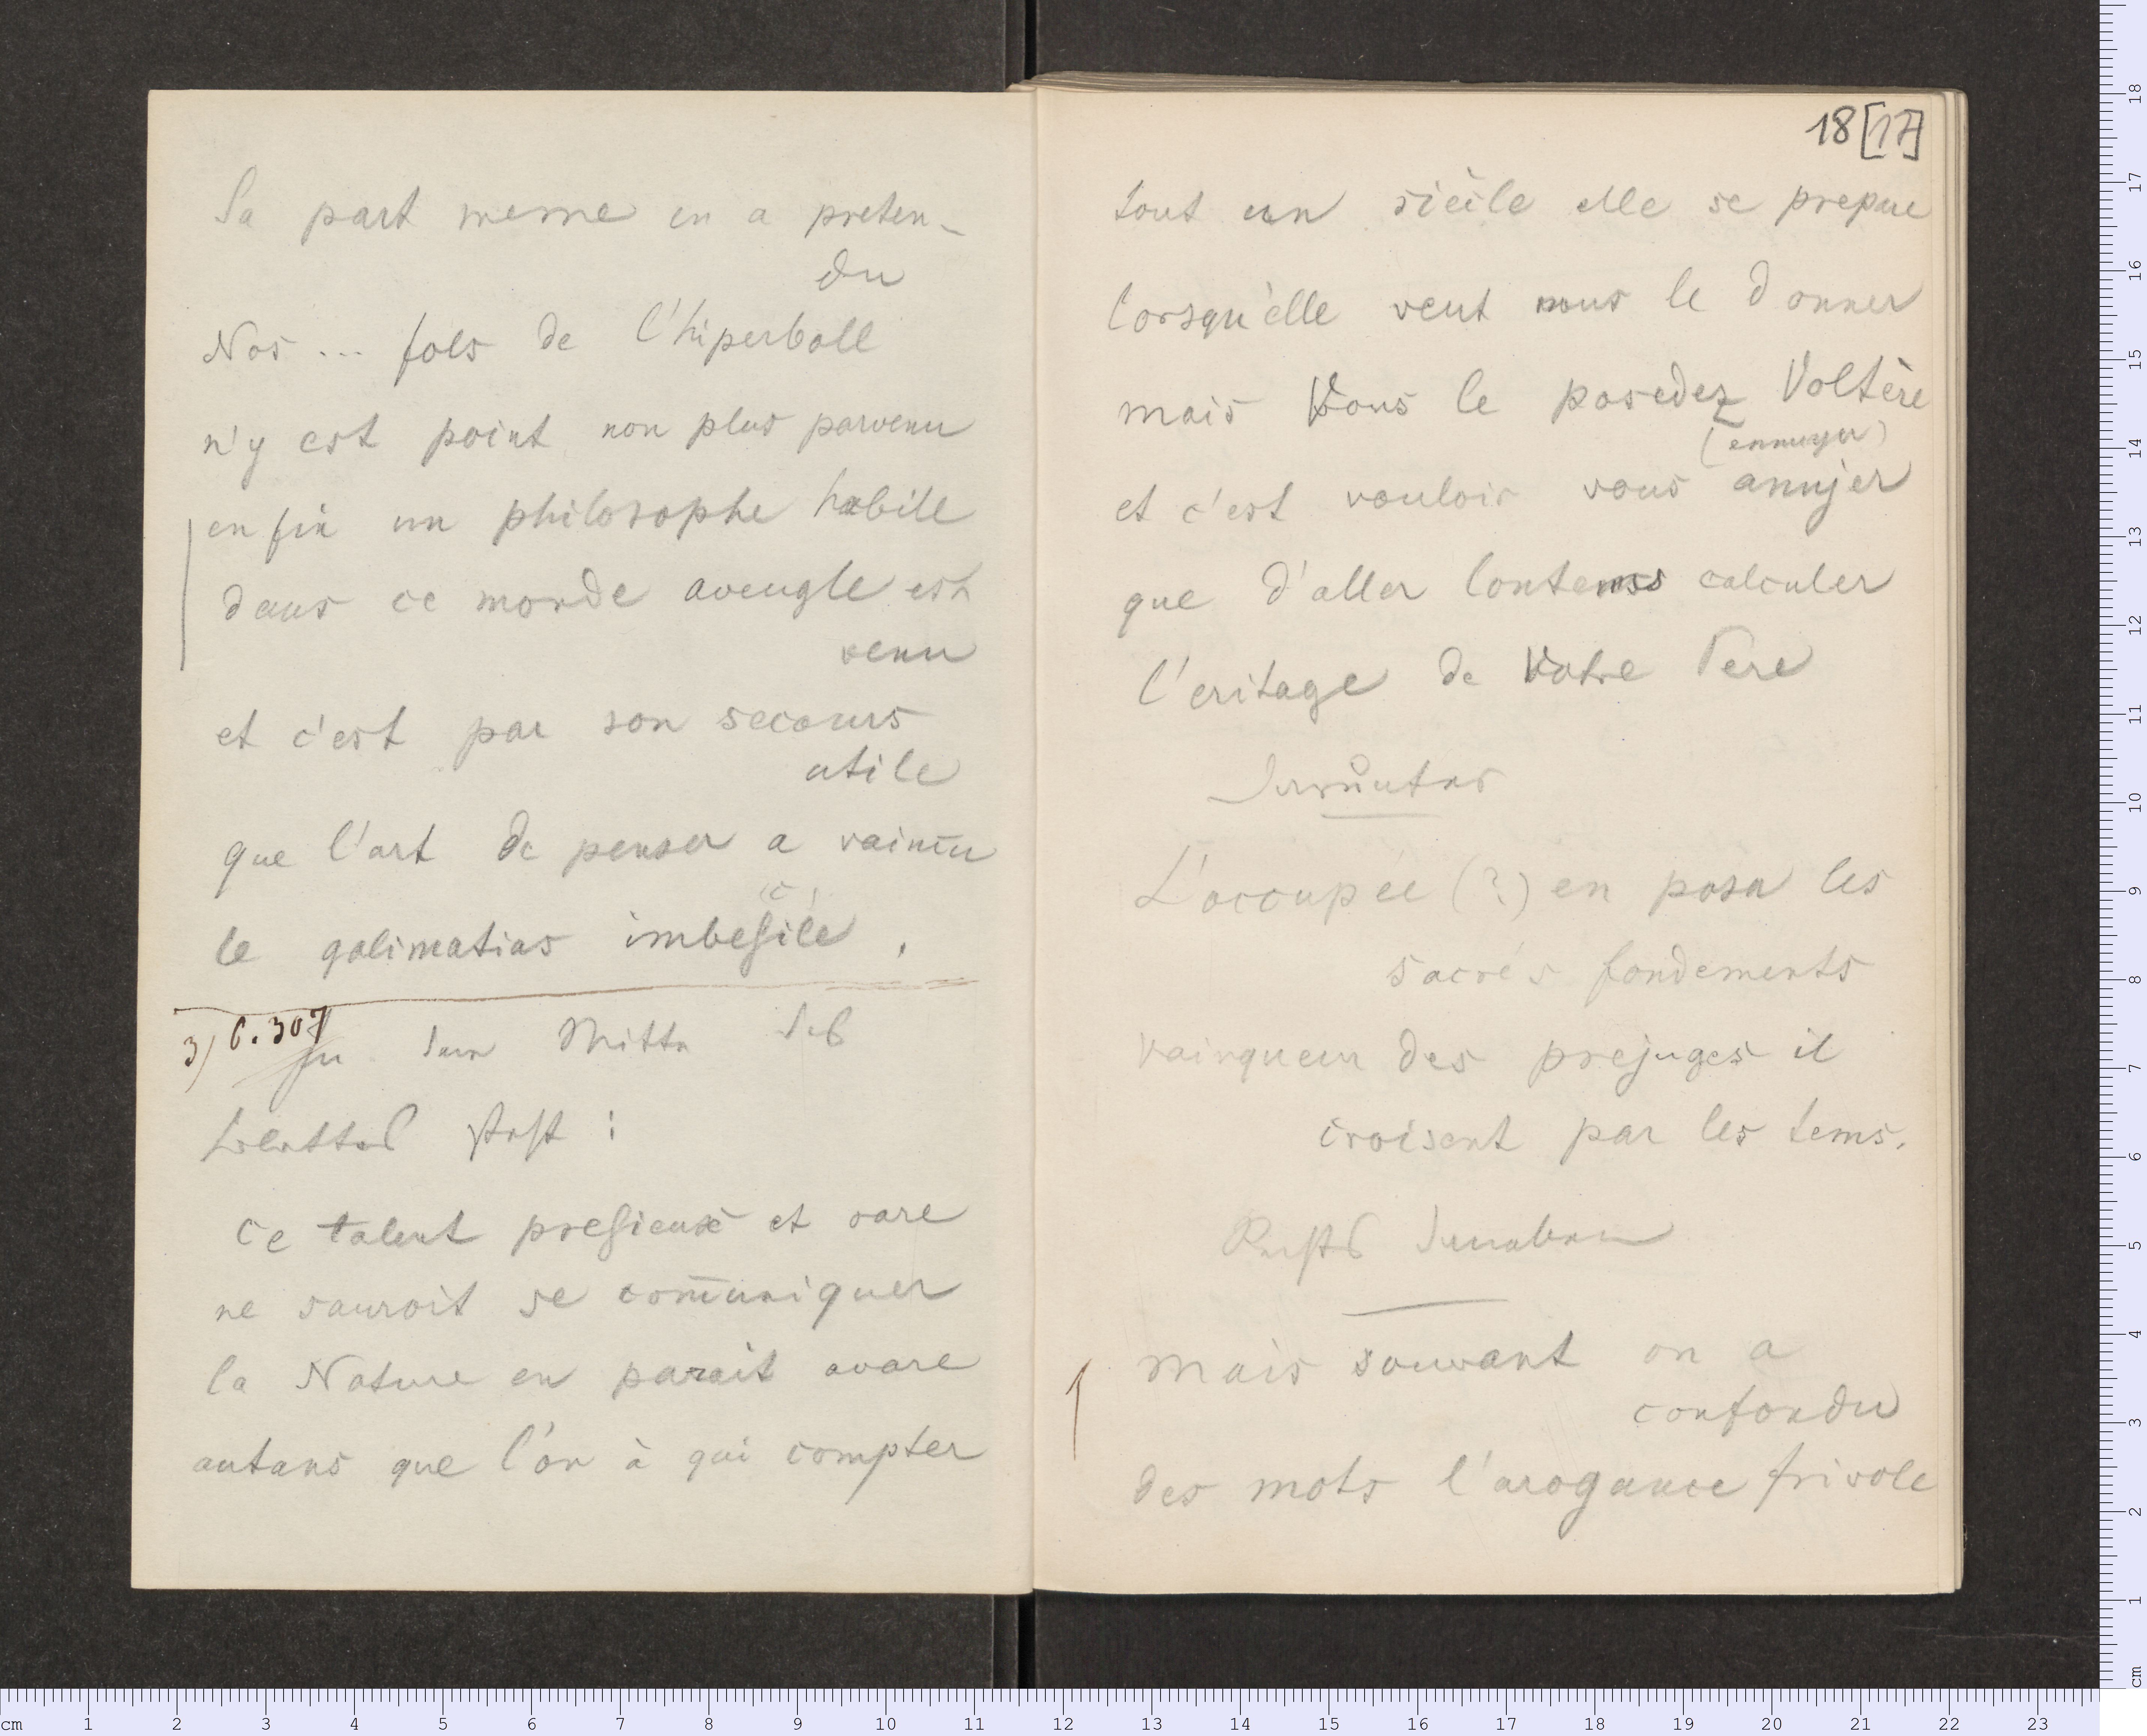 Sa part meme en a preten-
du
Nos ... fols de l'hiperboll
n'y est point non plus parvenu
enfin un philosophe habile
dans ce monde aveugle est
venu
et c'est par son secours
utile
que l'art de penser a vaincu
(c)
le galimatias imbesile.
3) C. 307
In der Mitte des
Blattes steht:
Ce talent presieuse et rare
ne sauroit se com̄uniquer
la Nature en parait avare
autans que l'on à qui compter
18[17]
tout un siècle elle se prepare
lorsqu'elle veut nous le donner
mais Vous le posedez Voltère
(ennuyer)
et c'est vouloir vous anujer
que d'aller lontemss calculer
l'eritage de Votre Pere
Darunter
L'occupée (?) en posa les
sacrés fondements
vainqueur des prejuges il
croisent par les tems.
Rechts daneben
Mais souvant on a
confondu
des mots l'arogance frivole